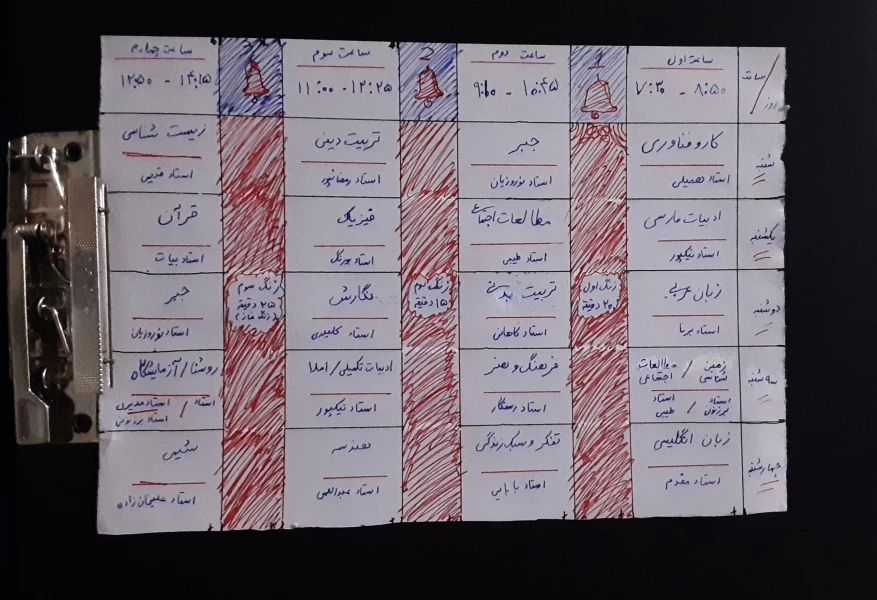 ساعت
روز
ساعت اول
۷:۳۰ - ۸:۵۰
1
ساعت دوم
۹:۱۰ - ۱۰:۴۵
2
ساعت سوم
۱۱:۰۰ - ۱۲:۲۵
3
ساعت چهارم
۱۲:۵۰ - ۱۴:۱۵
شنبه
کار و فناوری
استاد همیلی
جبر
استاد نوروزیان
تربیت دینی
استاد رمضانپور
زیست شناسی
استاد
یکشنبه
ادبیات فارسی
استاد نیکپور
مطالعات اجتماعی
استاد طیبی
فیزیک
استاد پورنگ
قرآن
استاد بیات
دوشنبه
زبان عربی
استاد برنا
زنگ اول
۲۰ دقیقه
تربیت بدنی
استاد کاهانی
زنگ دوم
۱۵ دقیقه
نگارش
استاد کلیدری
زنگ سوم
۲۵ دقیقه
(زنگ نماز)
جبر
استاد نوروزیان
سه شنبه
زمین شناسی / مطالعات اجتماعی
استاد / استاد طیبی
فرهنگ و هنر
استاد رستگار
ادبیات تکمیلی / املا
استاد نیکپور
روشنا / آزمایشگاه
استاد / استاد مدیری
استاد
چهارشنبه
زبان انگلیسی
استاد مقدم
تفکر و سبک زندگی
استاد بابایی
هندسه
استاد عبداللهی
شیمی
استاد علیجان زاده